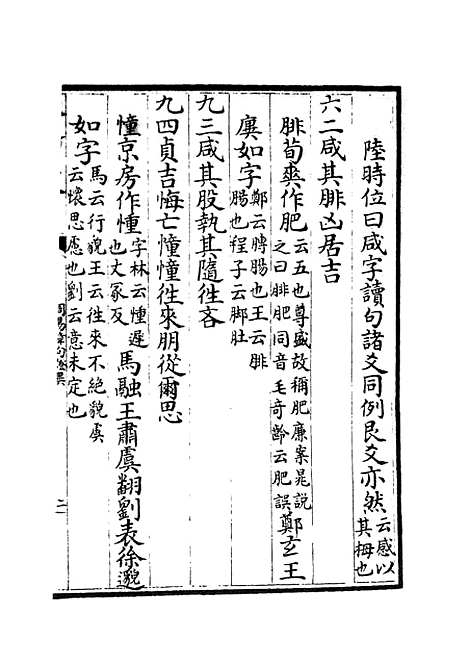 陸時位曰咸字讀句諸爻同例艮爻亦然云感以
其拇也
六二咸其腓凶居吉
腓荀爽作肥云五也尊盛故稱肥廉案晁說
之曰腓肥同音毛奇齡云肥誤鄭玄王
廙如字鄭云膊腸也王云腓
腸也程子云脚肚
九三咸其股執其隨徃吝
九四貞吉悔亡憧憧徃來朋從爾思
憧京房作㥁字林云㥁遲
也丈冢反馬融王肅虞翻劉表徐邈
如字馬云行貌王云徃來不絶貌虞
云懷思慮也劉云意未定也